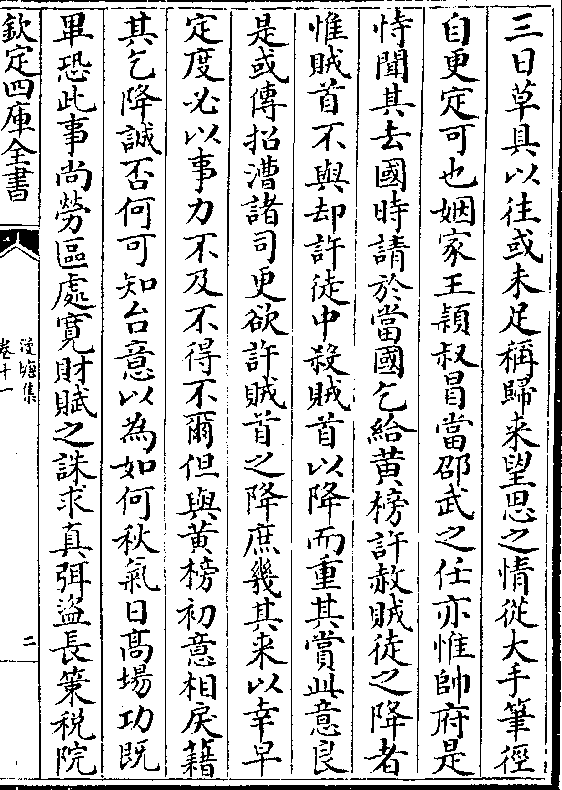 三日草具以往或未足稱歸来望思之情從大手筆徑
自更定可也姻家王穎叔冐當邵武之任亦惟帥府是
恃聞其去國時請於當國乞給黄榜許赦賊徒之降者
惟賊首不與却許徒中殺賊首以降而重其賞此意良
是或傳招漕諸司更欲許賊首之降庶幾其来以幸早
定度必以事力不及不得不爾但與黄榜初意相戾藉
其乞降誠否何可知台意以為如何秋氣日髙場功既
畢恐此事尚勞區處寛財賦之誅求真弭盜長策税院
欽定四庫全書
漫塘集
卷十一
二